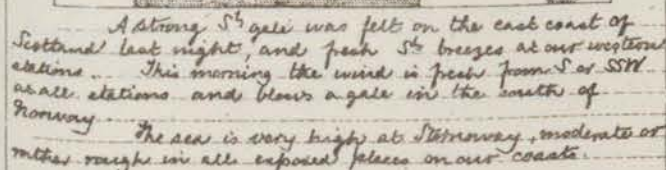 A strong Sly gale was felt on the east coast of
Scotland last night, and fresh Sly breezes at our western
stations. This morning the wind is fresh from S or SSW
at all stations and blows a gale in the south of
Norway.
The sea is very high at Stornoway, moderate or
rather rough in all exposed places on our coasts.